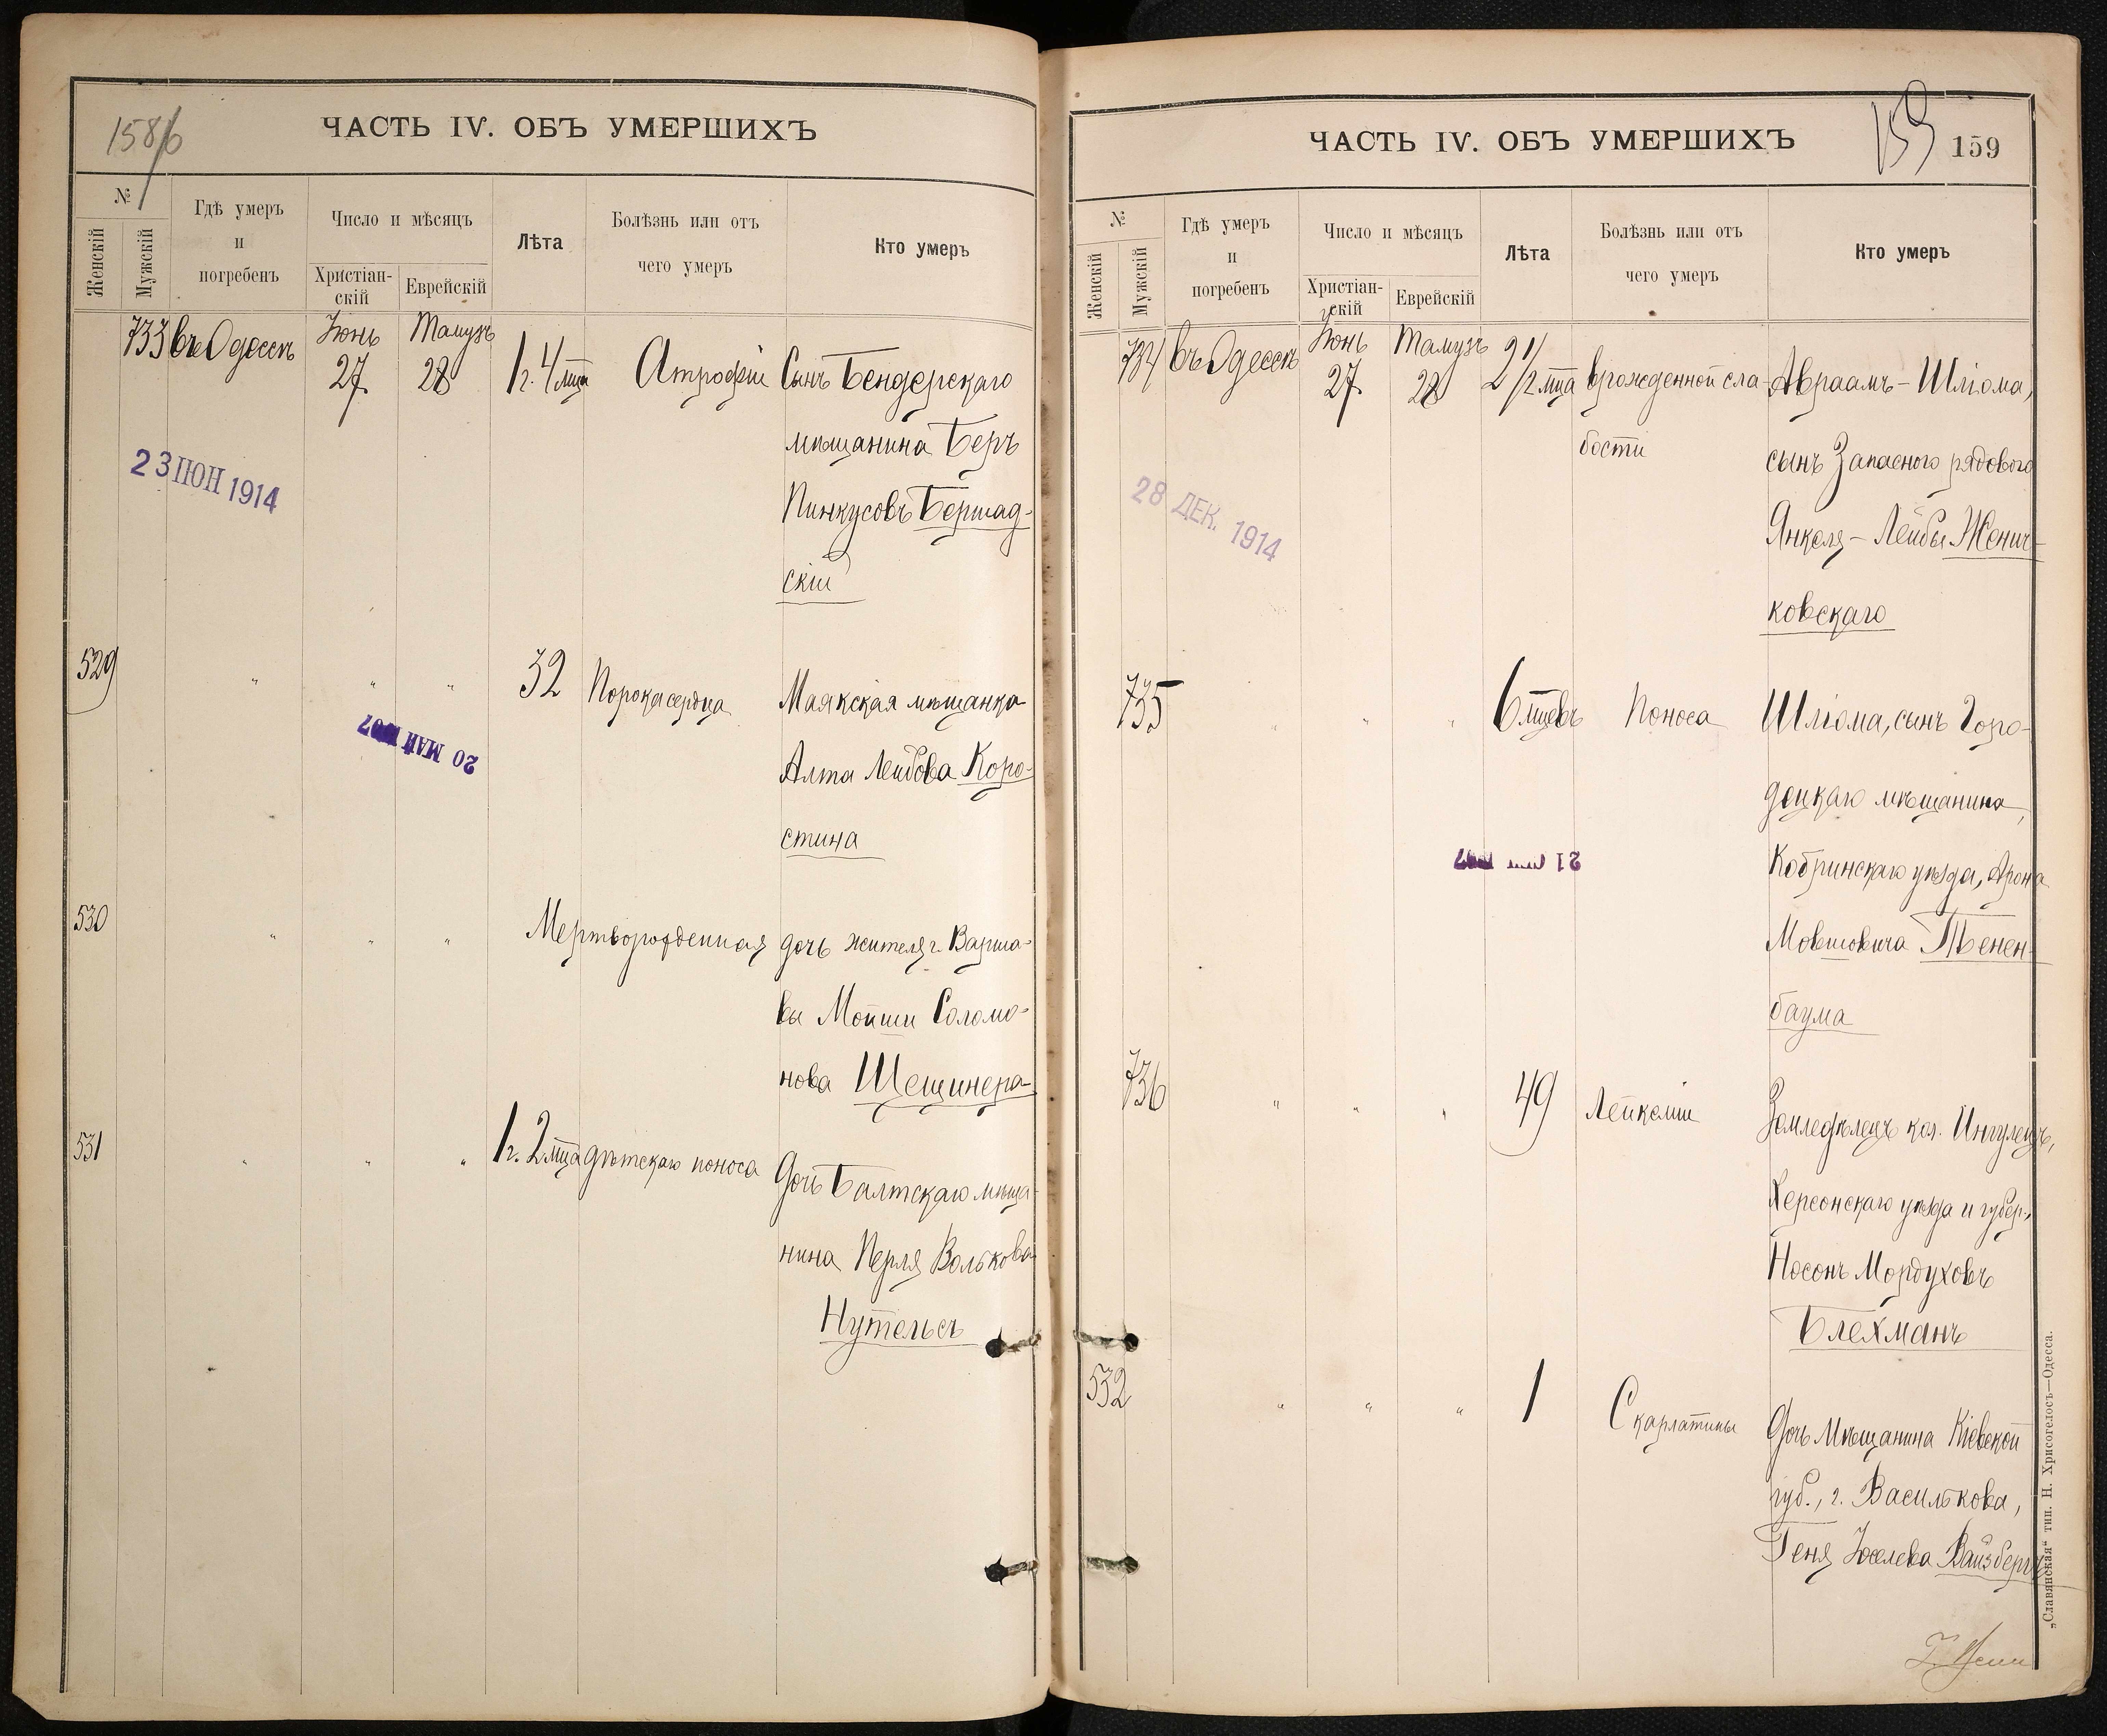 158/б
ЧАСТЬ IV. ОБЪ УМЕРШИХЪ
№
Женскій
Мужскій
Гдѣ умеръ
и
погребенъ
Число и мѣсяцъ
Христіан-
скій
Еврейскій
Лѣта
Болѣзнь или отъ
чего умеръ
Кто умеръ
733 въ Одессѣ Іюнь 27 Тамузъ 28 1 г. 4 мца Атрофіи Сынъ Бендерскаго
мѣщанина Беръ
Пинкусовъ Бершад-
скій
23 ІЮН 1914
529 " " " 32 Порока сердца Маякская мѣщанка
Алта Лейбова Коро-
стина
20 МАЙ
530 " " " Мертворожденная дочь жителя г. Варша-
вы Мойши Соломо-
нова Щещинера
531 " " " 1 г. 2 мца дѣтскаго поноса Дочь Балтскаго мѣща-
нина Перля Волькова
Нутельсъ
ЧАСТЬ IV. ОБЪ УМЕРШИХЪ
159
159
№
Женскій
Мужскій
Гдѣ умеръ
и
погребенъ
Число и мѣсяцъ
Христіан-
скій
Еврейскій
Лѣта
Болѣзнь или отъ
чего умеръ
Кто умеръ
734 въ Одессѣ Іюнь 27 Тамузъ 28 2 1/2 мца врожденной сла- Авраамъ-Шліома,
бости сынъ Запасного рядового
Янкеля-Лейбы Женич-
ковскаго
28 ДЕК. 1914
735 " " " 6 мцевъ Поноса Шліома, сынъ Горо-
децкаго мѣщанина,
Кобринскаго уѣзда, Арона
Мовшовича Тенен-
баума
21
736 " " " 49 Лейкеміи Земледѣлецъ кол. Ингулецъ,
Херсонскаго уѣзда и губер.,
Носонъ Мордуховъ
Блехманъ
532 " " " 1 Скарлатины Дочь Мѣщанина Кіевской
губ., г. Василькова,
Геня Іоселева Вайзбергъ
„Славянская“ тип. Н. Хрисогелосъ—Одесса.